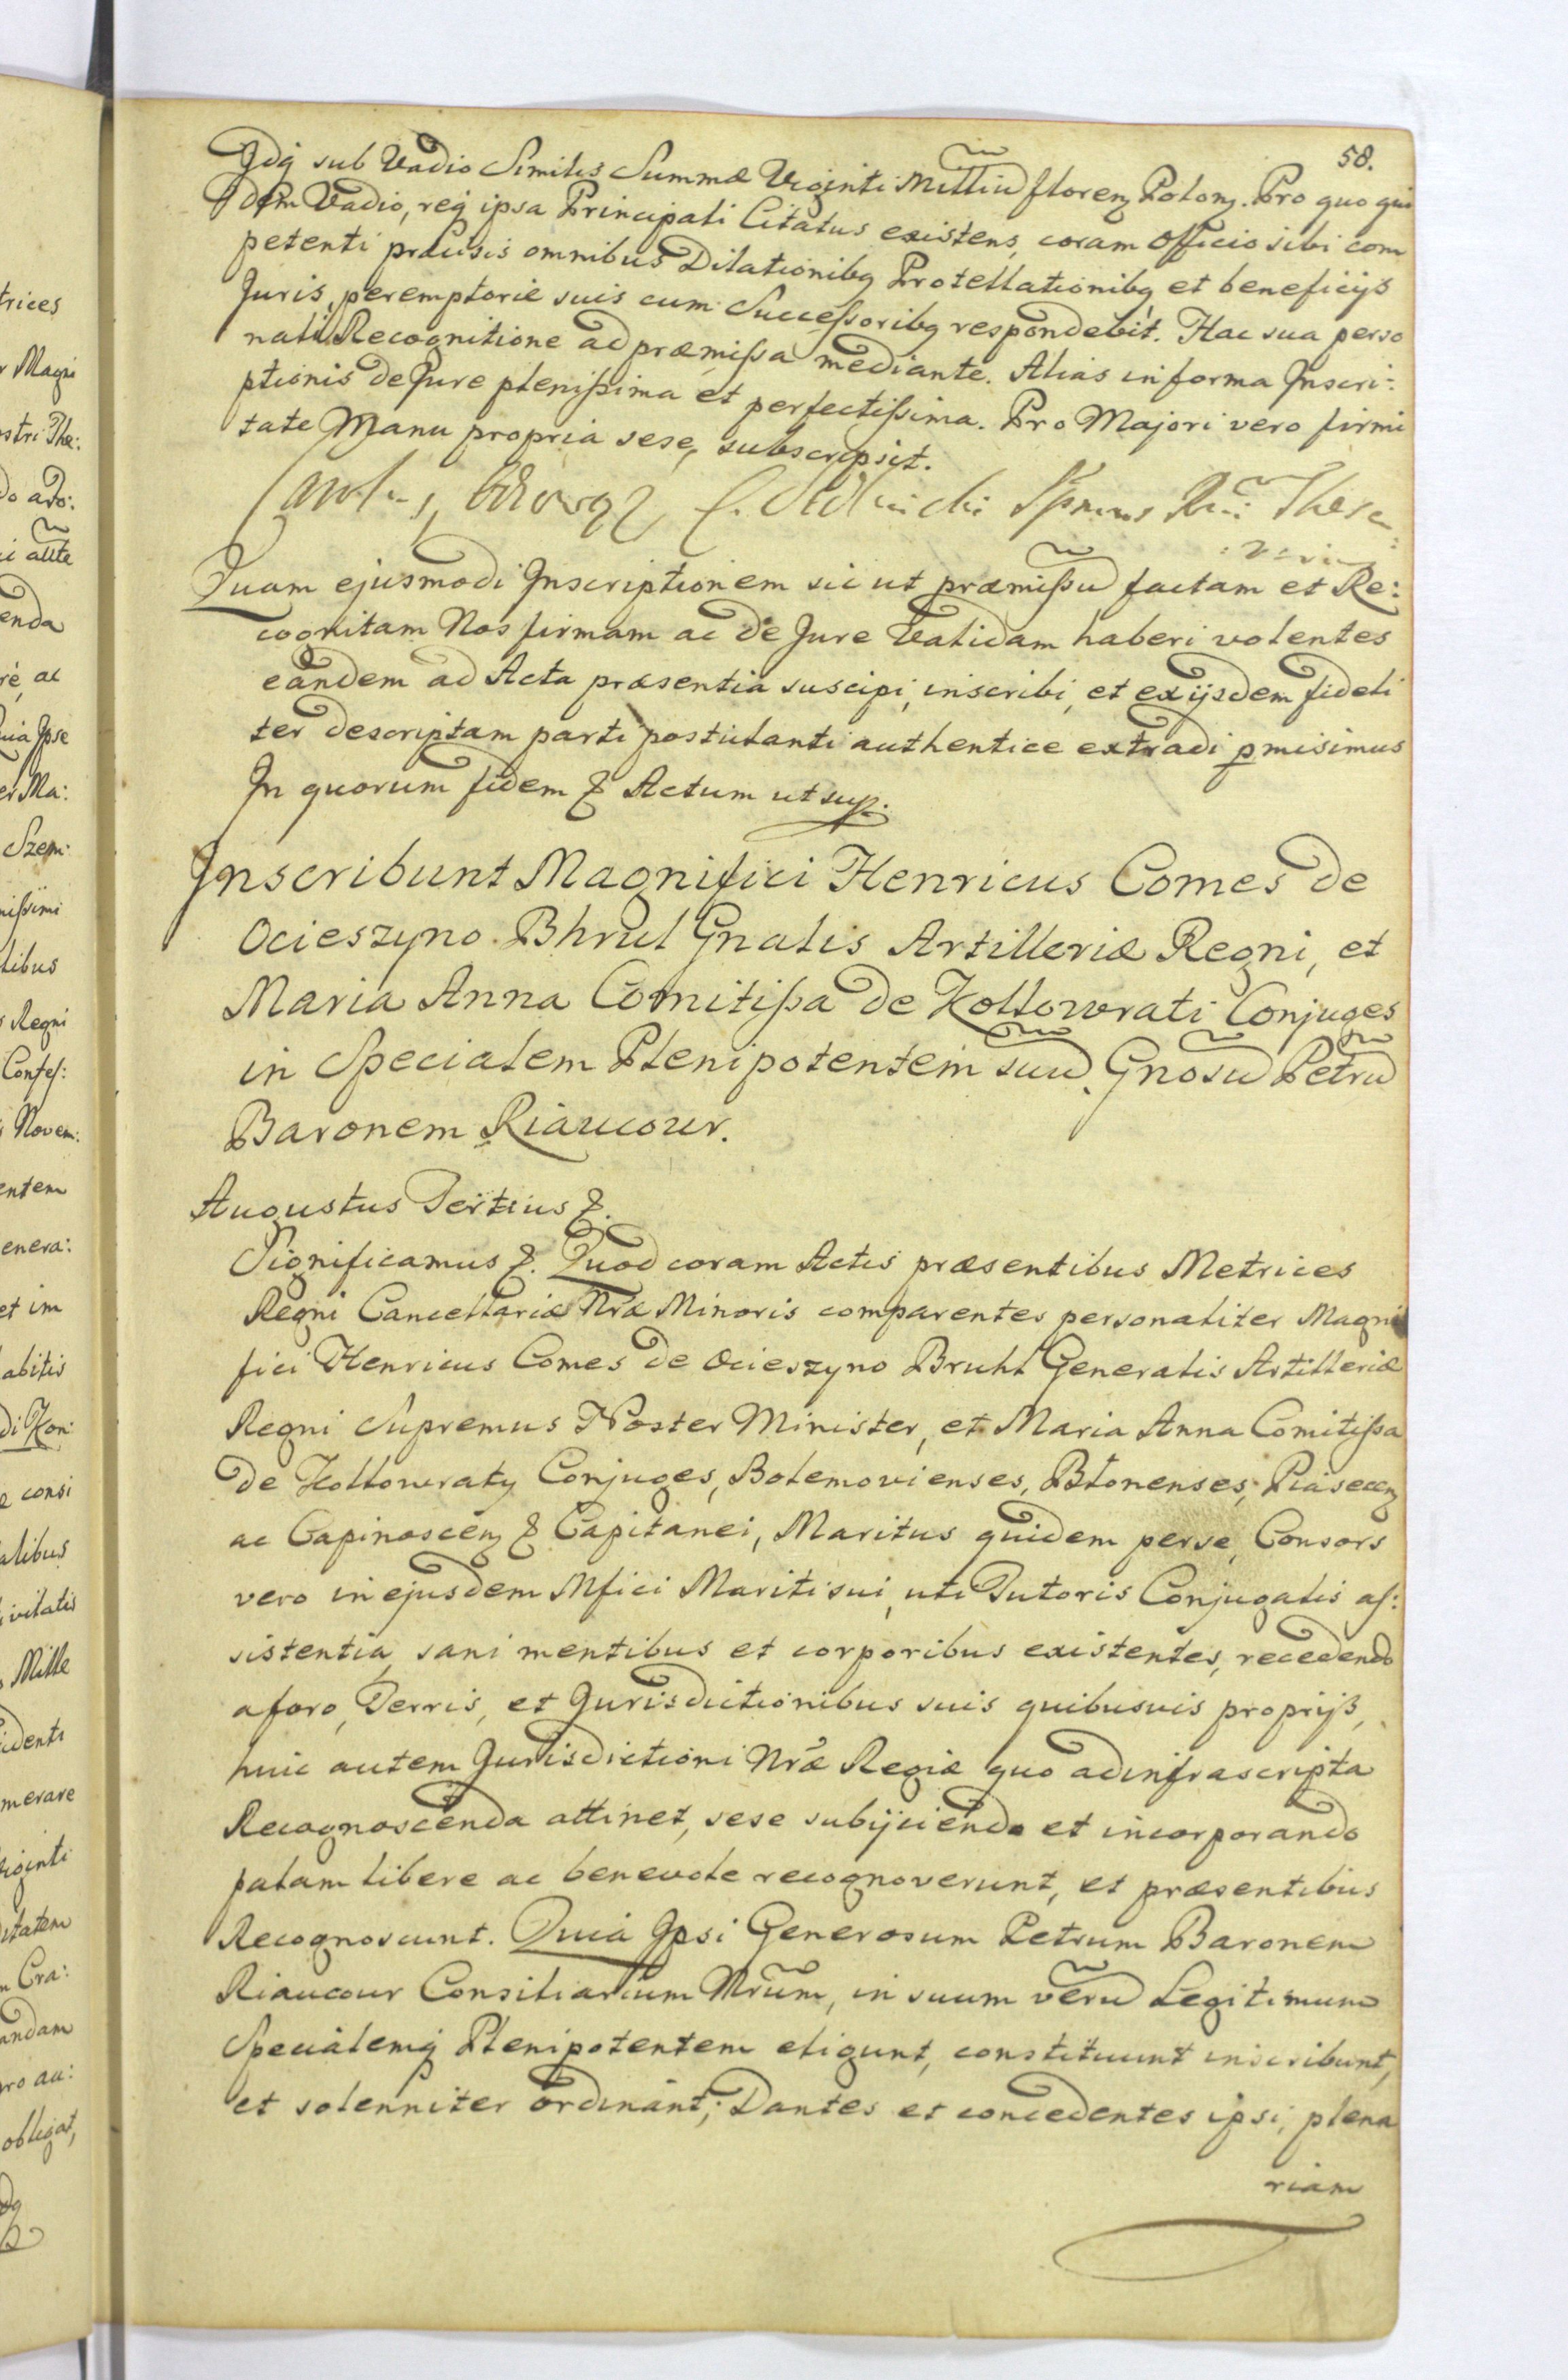 58.
Idq̃ sub Vadio Similis Summæ Viginti Milliũ floreń Poloń. Pro quo qui
dem Vadio, req̃ ipsa Principali Citatus existens, coram Officio sibi com
petenti præcisis omnibus Dilationibq Protellationibq et beneficijs
Juris, peremptorie suis cum Successoribq respondebit. Hac sua perso
nali Recognitione ad præmissa mediante. Alias in forma Inscri:
ptionis de Jure plenissima et perfectissima. Pro Majori vero firmi
tate Manu propria sese subscripsit.
Carolus Sedlnicki Spmus Rni Thesa
Quam ejusmodi Inscriptionem sic ut præmissũ factam et Re:
cognitam Nos firmam ac de Jure Validam haberi volentes
eandem ad Acta præsentia suscipi, inscribi, et ex ijsdem fideli
ter descriptam parti postulanti authentice extradi pmisimus
In quorum fidem & Actum ut sup.
Inscribunt Magnifici Henricus Comes de
Ocieszyno Bhrul Gnalis Artilleriæ Regni, et
Maria Anna Comitissa de Kollowrati Conjuges
in Specialem Plenipotentem suũ Gnosũ Petrũ
Baronem Riaucour.
Augustus Tertius &.
Significamus &. Quod coram Actis præsentibus Metrices
Regni Cancellariæ Nræ Minoris comparentes personaliter Magni
fici Henricus Comes de Ocieszyno Bruhl Generalis Artilleriæ
Regni Supremus Noster Minister, et Maria Anna Comitissa
de Kollowraty Conjuges, Bolemovienses, Blonenses, Piaseceń
ac Capinosceń & Capitanei, Maritus quidem per se, Consors
vero in ejusdem Mfici Mariti sui, uti Tutoris Conjugalis as:
sistentia, sani mentibus et corporibus existentes, recedendo
a foro, Terris, et Jurisdictionibus suis quibusvis proprijs,
huic autem Jurisdictioni Nræ Regiæ quo ad infrascripta
Recognoscenda attinet, sese subijciendo et incorporando
palam libere ac benevole recognoverunt, et præsentibus
Recognoscunt. Quia Ipsi Generosum Petrum Baronem
Riaucour Consiliarium Nrum, in suum verũ Legitimum
Specialemq̃ Plenipotentem eligunt, constituunt inscribunt,
et solenniter ordinant; Dantes et concedentes ipsi, plena
riam